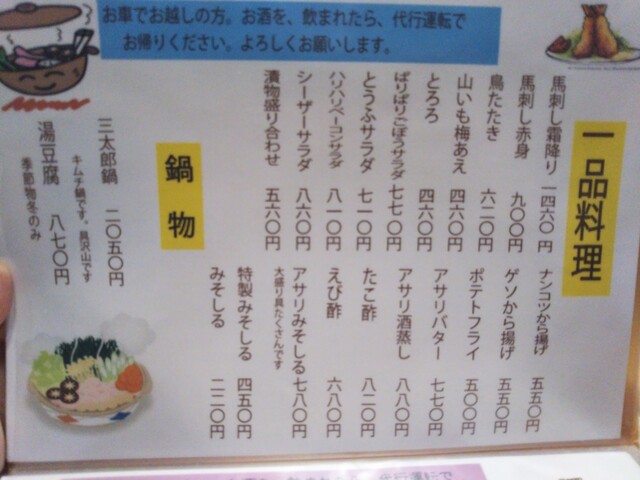 お車でお越しの方。お酒を、飲まれたら、代行運転で
お帰りください。よろしくお願いします。
一品料理
馬刺し霜降り 一四六〇円
馬刺し赤身 九〇〇円
鳥たたき 六二〇円
山いも梅あえ 四六〇円
とろろ 四六〇円
ぱりぱりごぼうサラダ 七七〇円
とうふサラダ 七一〇円
パリパリベーコンサラダ 八一〇円
シーザーサラダ 八六〇円
漬物盛り合わせ 五六〇円
ナンコツから揚げ 五五〇円
ゲソから揚げ 五五〇円
ポテトフライ 五〇〇円
アサリバター 七七〇円
アサリ酒蒸し 八八〇円
たこ酢 八二〇円
えび酢 六八〇円
アサリみそしる 七八〇円
大盛り具たくさんです
特製みそしる 四五〇円
みそしる 二二〇円
鍋物
三太郎鍋 二〇五〇円
キムチ鍋です。具沢山です
湯豆腐 八七〇円
季節物冬のみ
代行運転で